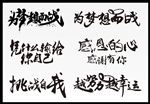 为梦想而战
为梦想而战
凭什么输给
你自己
感恩的心
感谢有你
挑战自我
越努力越幸运